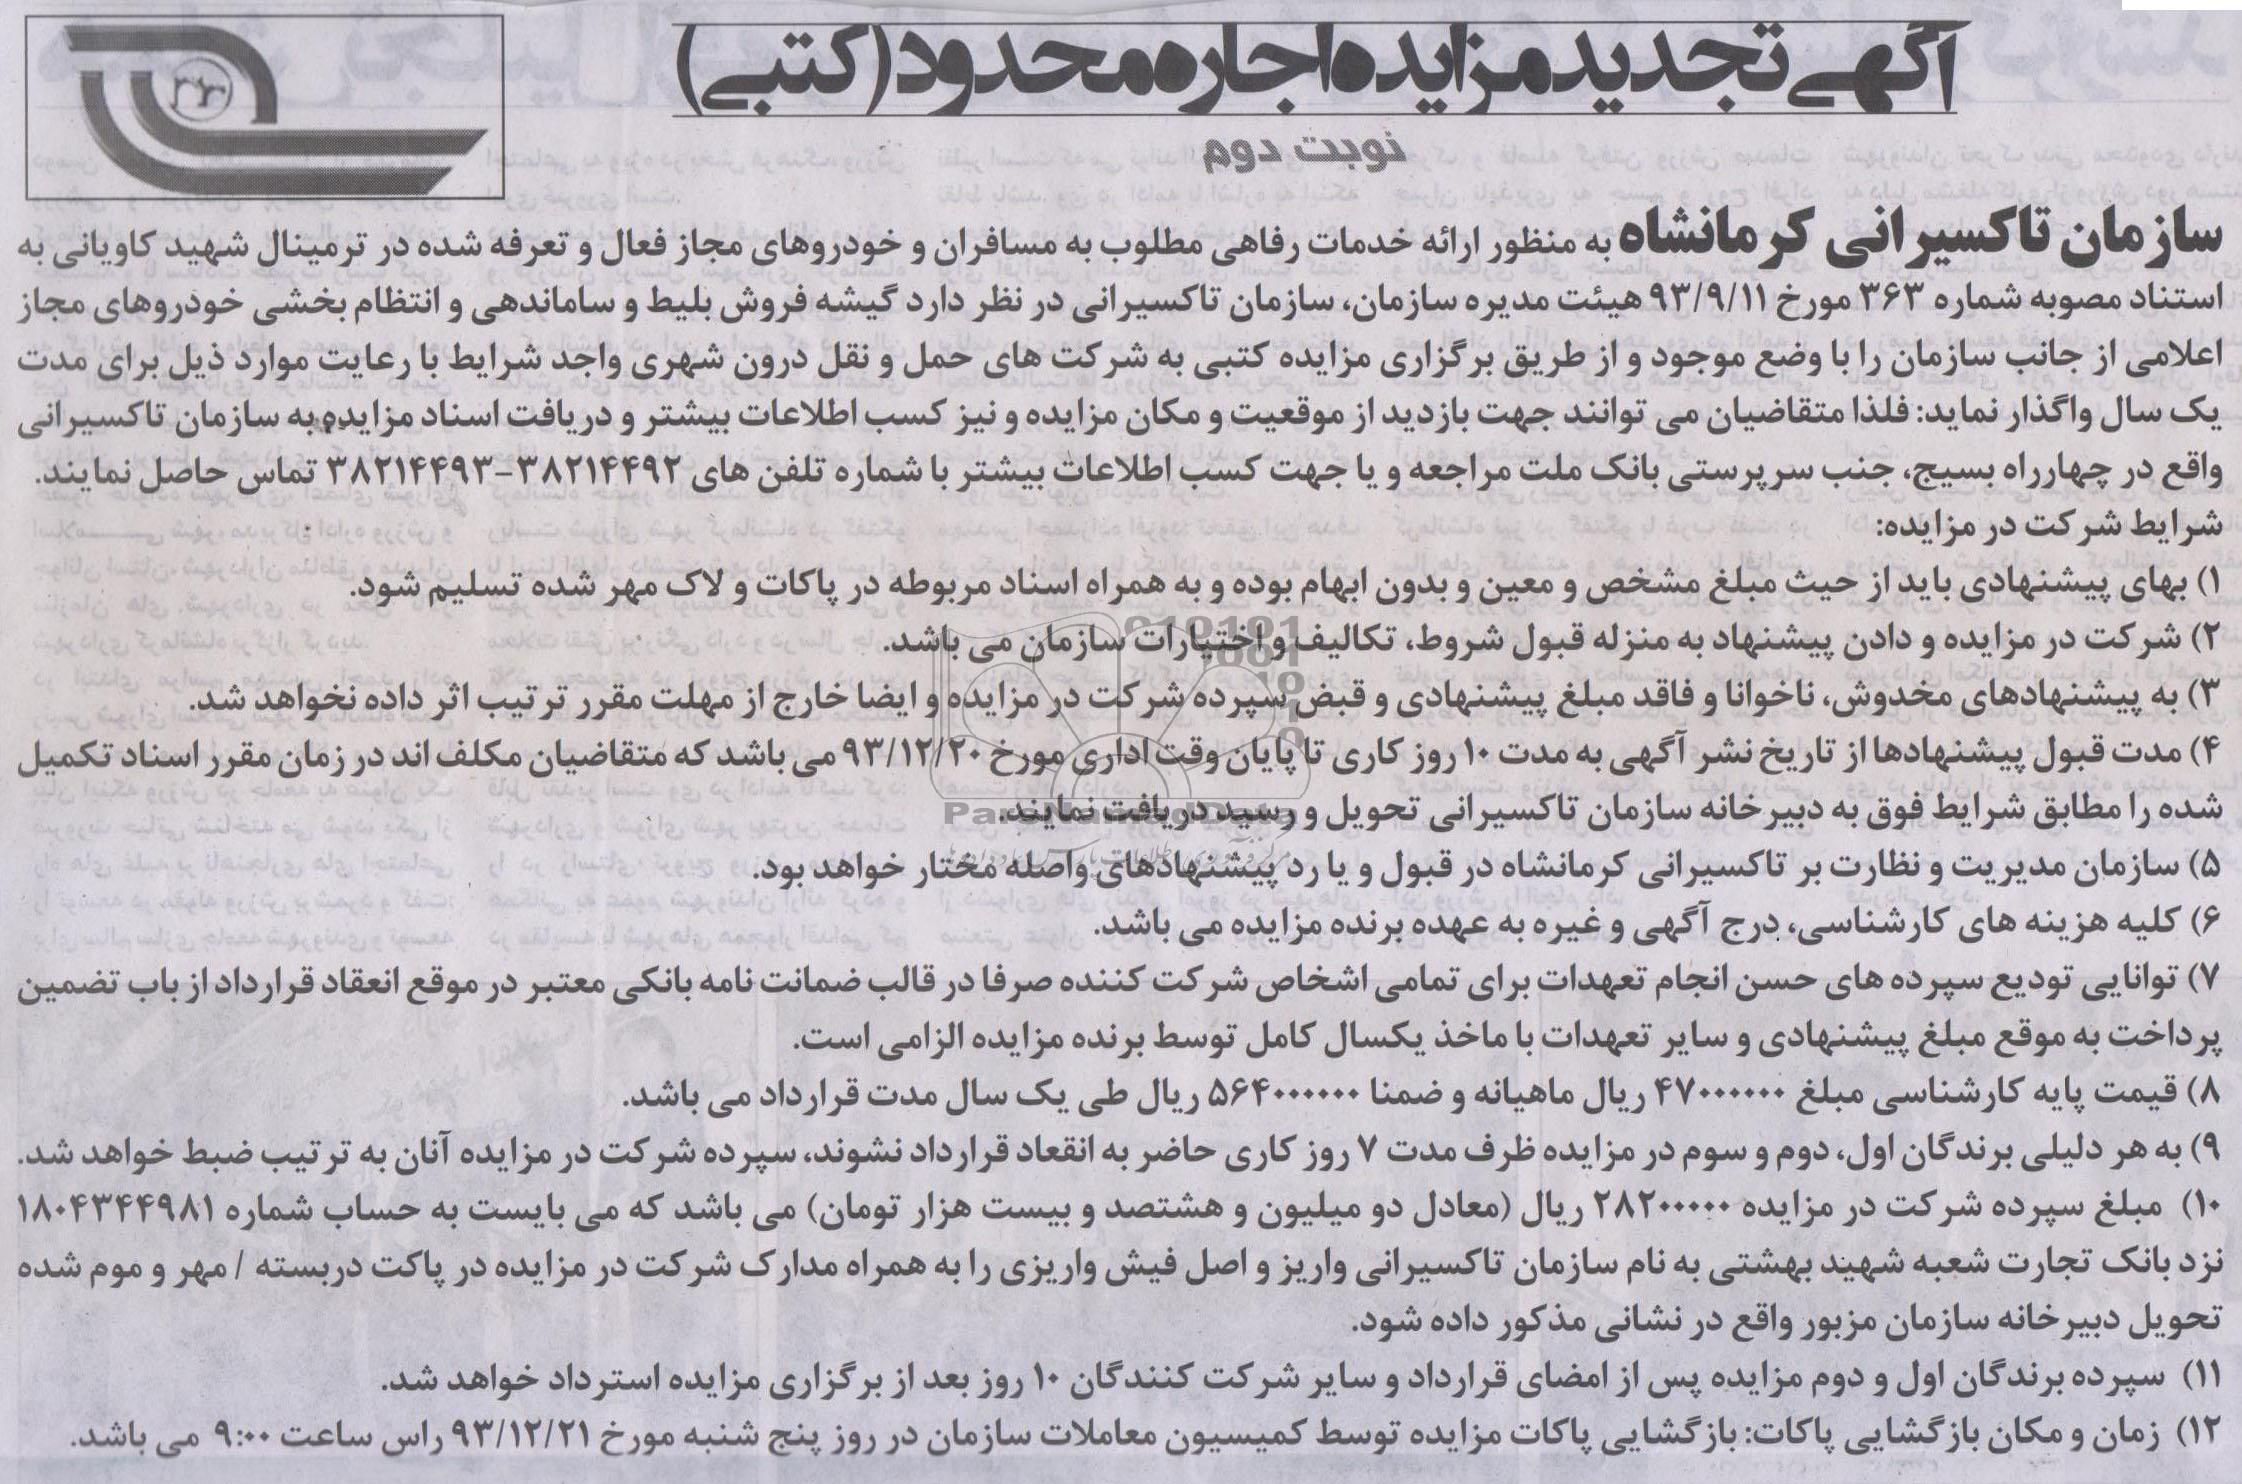 آگهی تجدید مزایده اجاره محدود (کتبی)
نوبت دوم
سازمان تاکسیرانی کرمانشاه به منظور ارائه خدمات رفاهی مطلوب به مسافران و خودروهای مجاز فعال و تعرفه شده در ترمینال شهید کاویانی به
استناد مصوبه شماره ۳۶۳ مورخ ۹۳/۹/۱۱ هیئت مدیره سازمان، سازمان تاکسیرانی در نظر دارد گیشه فروش بلیط و ساماندهی و انتظام بخشی خودروهای مجاز
اعلامی از جانب سازمان را با وضع موجود و از طریق برگزاری مزایده کتبی به شرکت های حمل و نقل درون شهری واجد شرایط با رعایت موارد ذیل برای مدت
یک سال واگذار نماید: فلذا متقاضیان می توانند جهت بازدید از موقعیت و مکان مزایده و نیز کسب اطلاعات بیشتر و دریافت اسناد مزایده به سازمان تاکسیرانی
واقع در چهارراه بسیج، جنب سرپرستی بانک ملت مراجعه و یا جهت کسب اطلاعات بیشتر با شماره تلفن های ۳۸۲۱۴۴۹۲-۳۸۲۱۴۴۹۳ تماس حاصل نمایند.
شرایط شرکت در مزایده:
۱) بهای پیشنهادی باید از حیث مبلغ مشخص و معین و بدون ابهام بوده و به همراه اسناد مربوطه در پاکات و لاک مهر شده تسلیم شود.
۲) شرکت در مزایده و دادن پیشنهاد به منزله قبول شروط، تکالیف و اختیارات سازمان می باشد.
۳) به پیشنهادهای مخدوش، ناخوانا و فاقد مبلغ پیشنهادی و قبض سپرده شرکت در مزایده و ایضا خارج از مهلت مقرر ترتیب اثر داده نخواهد شد.
۴) مدت قبول پیشنهادها از تاریخ نشر آگهی به مدت ۱۰ روز کاری تا پایان وقت اداری مورخ ۹۳/۱۲/۲۰ می باشد که متقاضیان مکلف اند در زمان مقرر اسناد تکمیل
شده را مطابق شرایط فوق به دبیرخانه سازمان تاکسیرانی تحویل و رسید دریافت نمایند.
ParsNamadData
۵) سازمان مدیریت و نظارت بر تاکسیرانی کرمانشاه در قبول و یا رد پیشنهادهای واصله مختار خواهد بود.
۶) کلیه هزینه های کارشناسی، درج آگهی و غیره به عهده برنده مزایده می باشد.
۷) توانایی تودیع سپرده های حسن انجام تعهدات برای تمامی اشخاص شرکت کننده صرفا در قالب ضمانت نامه بانکی معتبر در موقع انعقاد قرارداد از باب تضمین
پرداخت به موقع مبلغ پیشنهادی و سایر تعهدات با ماخذ یکسال کامل توسط برنده مزایده الزامی است.
۸) قیمت پایه کارشناسی مبلغ ۴۷۰۰۰۰۰۰ ریال ماهیانه و ضمنا ۵۶۴۰۰۰۰۰۰ ریال طی یک سال مدت قرارداد می باشد.
۹) به هر دلیلی برندگان اول، دوم و سوم در مزایده ظرف مدت ۷ روز کاری حاضر به انقعاد قرارداد نشوند، سپرده شرکت در مزایده آنان به ترتیب ضبط خواهد شد.
۱۰) مبلغ سپرده شرکت در مزایده ۲۸۲۰۰۰۰۰ ریال (معادل دو میلیون و هشتصد و بیست هزار تومان) می باشد که می بایست به حساب شماره ۱۸۰۴۳۴۴۹۸۱
نزد بانک تجارت شعبه شهید بهشتی به نام سازمان تاکسیرانی واریز و اصل فیش واریزی را به همراه مدارک شرکت در مزایده در پاکت دربسته / مهر و موم شده
تحویل دبیرخانه سازمان مزبور واقع در نشانی مذکور داده شود.
۱۱) سپرده برندگان اول و دوم مزایده پس از امضای قرارداد و سایر شرکت کنندگان ۱۰ روز بعد از برگزاری مزایده استرداد خواهد شد.
۱۲) زمان و مکان بازگشایی پاکات: بازگشایی پاکات مزایده توسط کمیسیون معاملات سازمان در روز پنج شنبه مورخ ۹۳/۱۲/۲۱ راس ساعت ۹:۰۰ می باشد.